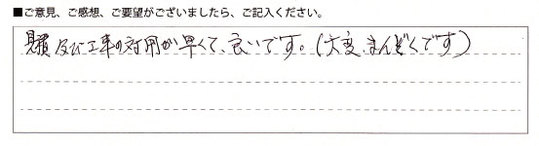 ■ご意見、ご感想、ご要望がございましたら、ご記入ください。
見積及び工事の対用が早くて、良いです。(大変、まんぞくです)